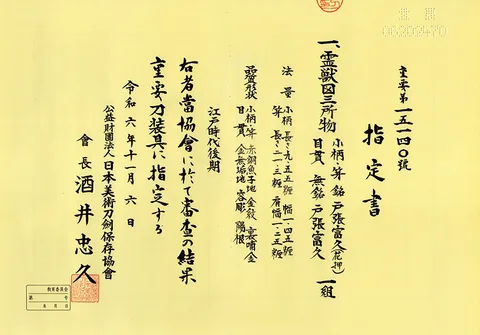 重要第一五一四〇號
指定書
一、霊獣図三所物 小柄・笄 銘 戸張富久(花押) 一組
目貫 無銘 戸張富久
法量 小柄 長さ 九・五五糎 幅 一・四五糎
笄 長さ 二一・三糎 肩幅 一・二五糎
品質形状 小柄・笄 赤銅魚子地 金紋 裏哺金
目貫 金無垢地 容彫 陽根
江戸時代後期
右者當協會に於て審査の結果
重要刀装具に指定する
令和六年十一月六日
公益財団法人 日本美術刀剣保存協會
會長 酒井忠久
教育委員会
第 号
年 月 日